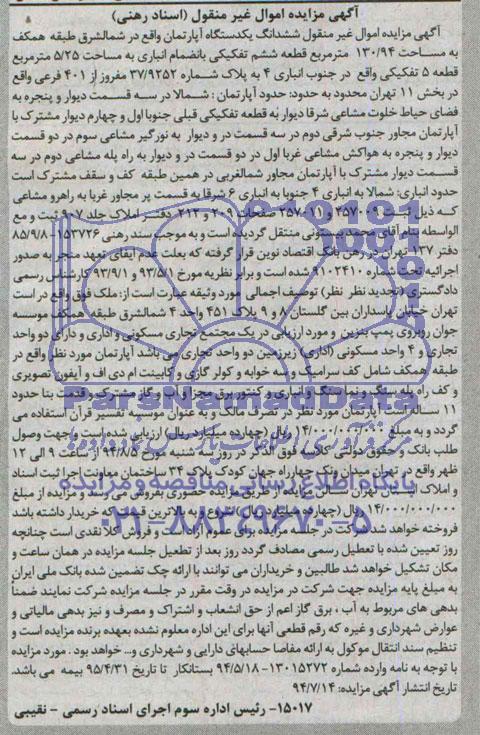 آگهی مزایده اموال غیر منقول (اسناد رهنی)
آگهی مزایده اموال غیر منقول ششدانگ یکدستگاه آپارتمان واقع در شمالشرق طبقه همکف
به مساحت ۱۳۰/۹۴ مترمربع قطعه ششم تفکیکی بانضمام انباری به مساحت ۵/۲۵ مترمربع
قطعه ۵ تفکیکی واقع در جنوب انباری ۴ به پلاک شماره ۳۷/۹۲۵۲ مفروز از ۴۰۱ فرعی واقع
در بخش ۱۱ تهران محدود به حدود: حدود آپارتمان : شمالا در سه قسمت دیوار و پنجره به
فضای حیاط خلوت مشاعی شرقا دیوار به قطعه تفکیکی قبلی جنوبا اول و چهارم دیوار مشترک با
آپارتمان مجاور جنوب شرقی دوم در سه قسمت در و دیوار به نورگیر مشاعی سوم در دو قسمت
دیوار و پنجره به هواکش مشاعی غربا اول در دو قسمت در و دیوار به راه پله مشاعی دوم در سه
قسمت دیوار مشترک با آپارتمان مجاور شمالغربی در همین طبقه کف و سقف مشترک است
حدود انباری: شمالا به انباری ۴ جنوبا به انباری ۶ شرقا به قسمت پر مجاور غربا به راهرو مشاعی
که ذیل ثبت ۴۵۷۰۰۹ و ۴۵۷۰۱۱ صفحات ۲۰۹ و ۲۱۲ دفتر املاک جلد ۹۰۷ ثبت و مع
الواسطه بنام آقای محمد بستونی منتقل گردیده است و به موجب سند رهنی ۱۵۳۷۲۶-۸۵/۹/۸
دفتر ۱۳۷ تهران در رهن بانک اقتصاد نوین قرار گرفته که بعلت عدم ایفای تعهد منجر به صدور
اجرائیه تحت شماره ۹۱۰۲۴۱۰ شده است و برابر نظریه مورخ ۹۳/۵/۱ و ۹۳/۹/۱ کارشناس رسمی
دادگستری (تجدید نظر نظر) توصیف اجمالی مورد وثیقه عبارت است از: ملک فوق واقع در است
تهران خیابان پاسداران بین گلستان ۸ و ۹ پلاک ۴۵۱ واحد ۴ شمالشرق طبقه همکف موسسه
جوان روبروی پمپ بنزین و مورد ارزیابی در یک مجتمع تجاری مسکونی و اداری و دارای دو واحد
تجاری و ۴ واحد مسکونی (اداری) زیرزمین دو واحد تجاری می باشد آپارتمان مورد نظر واقع در
طبقه همکف شامل کف سرامیک و سه خوابه و کولر گازی و کابینت ام دی اف و آیفون تصویری
و کف راه پله سنگ و نما سنگ و انباری و کنتور برق مجزا و آب و گاز مشترک و قدمت بنا حدود
۱۱ ساله است آپارتمان مورد نظر در تصرف مالک و به عنوان موسسه تفسیر قرآن استفاده می
گردد و به مبلغ ۱۴/۰۰۰/۰۰۰/۰۰۰ ریال (چهارده میلیارد ریال) ارزیابی شده است و جهت وصول
طلب بانک و حقوق دولتی کلاسه فوق الذکر در روز سه شنبه مورخ ۹۴/۸/۵ از ساعت ۹ الی ۱۲
ظهر واقع در تهران میدان ونک چهارراه جهان کودک پلاک ۳۴ ساختمان معاونت اجرا ثبت اسناد
و املاک استان تهران سالن مزایده از طریق مزایده حضوری بفروش می رسد و مزایده از مبلغ
۱۴/۰۰۰/۰۰۰/۰۰۰ ریال (چهارده میلیارد ریال) شروع و به بالاترین قیمتی که خریدار داشته باشد
فروخته خواهد شد شرکت در جلسه مزایده برای عموم آزاد است و فروش کلا نقدی است چنانچه
روز تعیین شده با تعطیل رسمی مصادف گردد روز بعد از تعطیل جلسه مزایده در همان ساعت و
مکان تشکیل خواهد شد طالبین و خریداران می توانند با ارائه چک تضمین شده بانک ملی ایران
به مبلغ پایه مزایده جهت شرکت در مزایده در وقت مقرر در جلسه مزایده شرکت نمایند ضمناً
بدهی های مربوط به آب ، برق گاز اعم از حق انشعاب و اشتراک و مصرف و نیز بدهی مالیاتی و
عوارض شهرداری و غیره که رقم قطعی آنها برای این اداره معلوم نشده بعهده برنده مزایده است و
تنظیم سند انتقال موکول به ارائه مفاصا حسابهای دارایی و شهرداری و... خواهد بود . مورد مزایده
با توجه به نامه وارده شماره ۱۳۰۱۵۲۷۲-۹۴/۵/۱۸ بستانکار تا تاریخ ۹۵/۴/۳۱ بیمه می باشد.
تاریخ انتشار آگهی مزایده: ۹۴/۷/۱۴
۱۵۰۱۷- رئیس اداره سوم اجرای اسناد رسمی - نقیبی
ParsNamadData
پایگاه اطلاع رسانی مناقصه و مزایده
۰۲۱-۸۸۳۴۹۶۷۰-۵